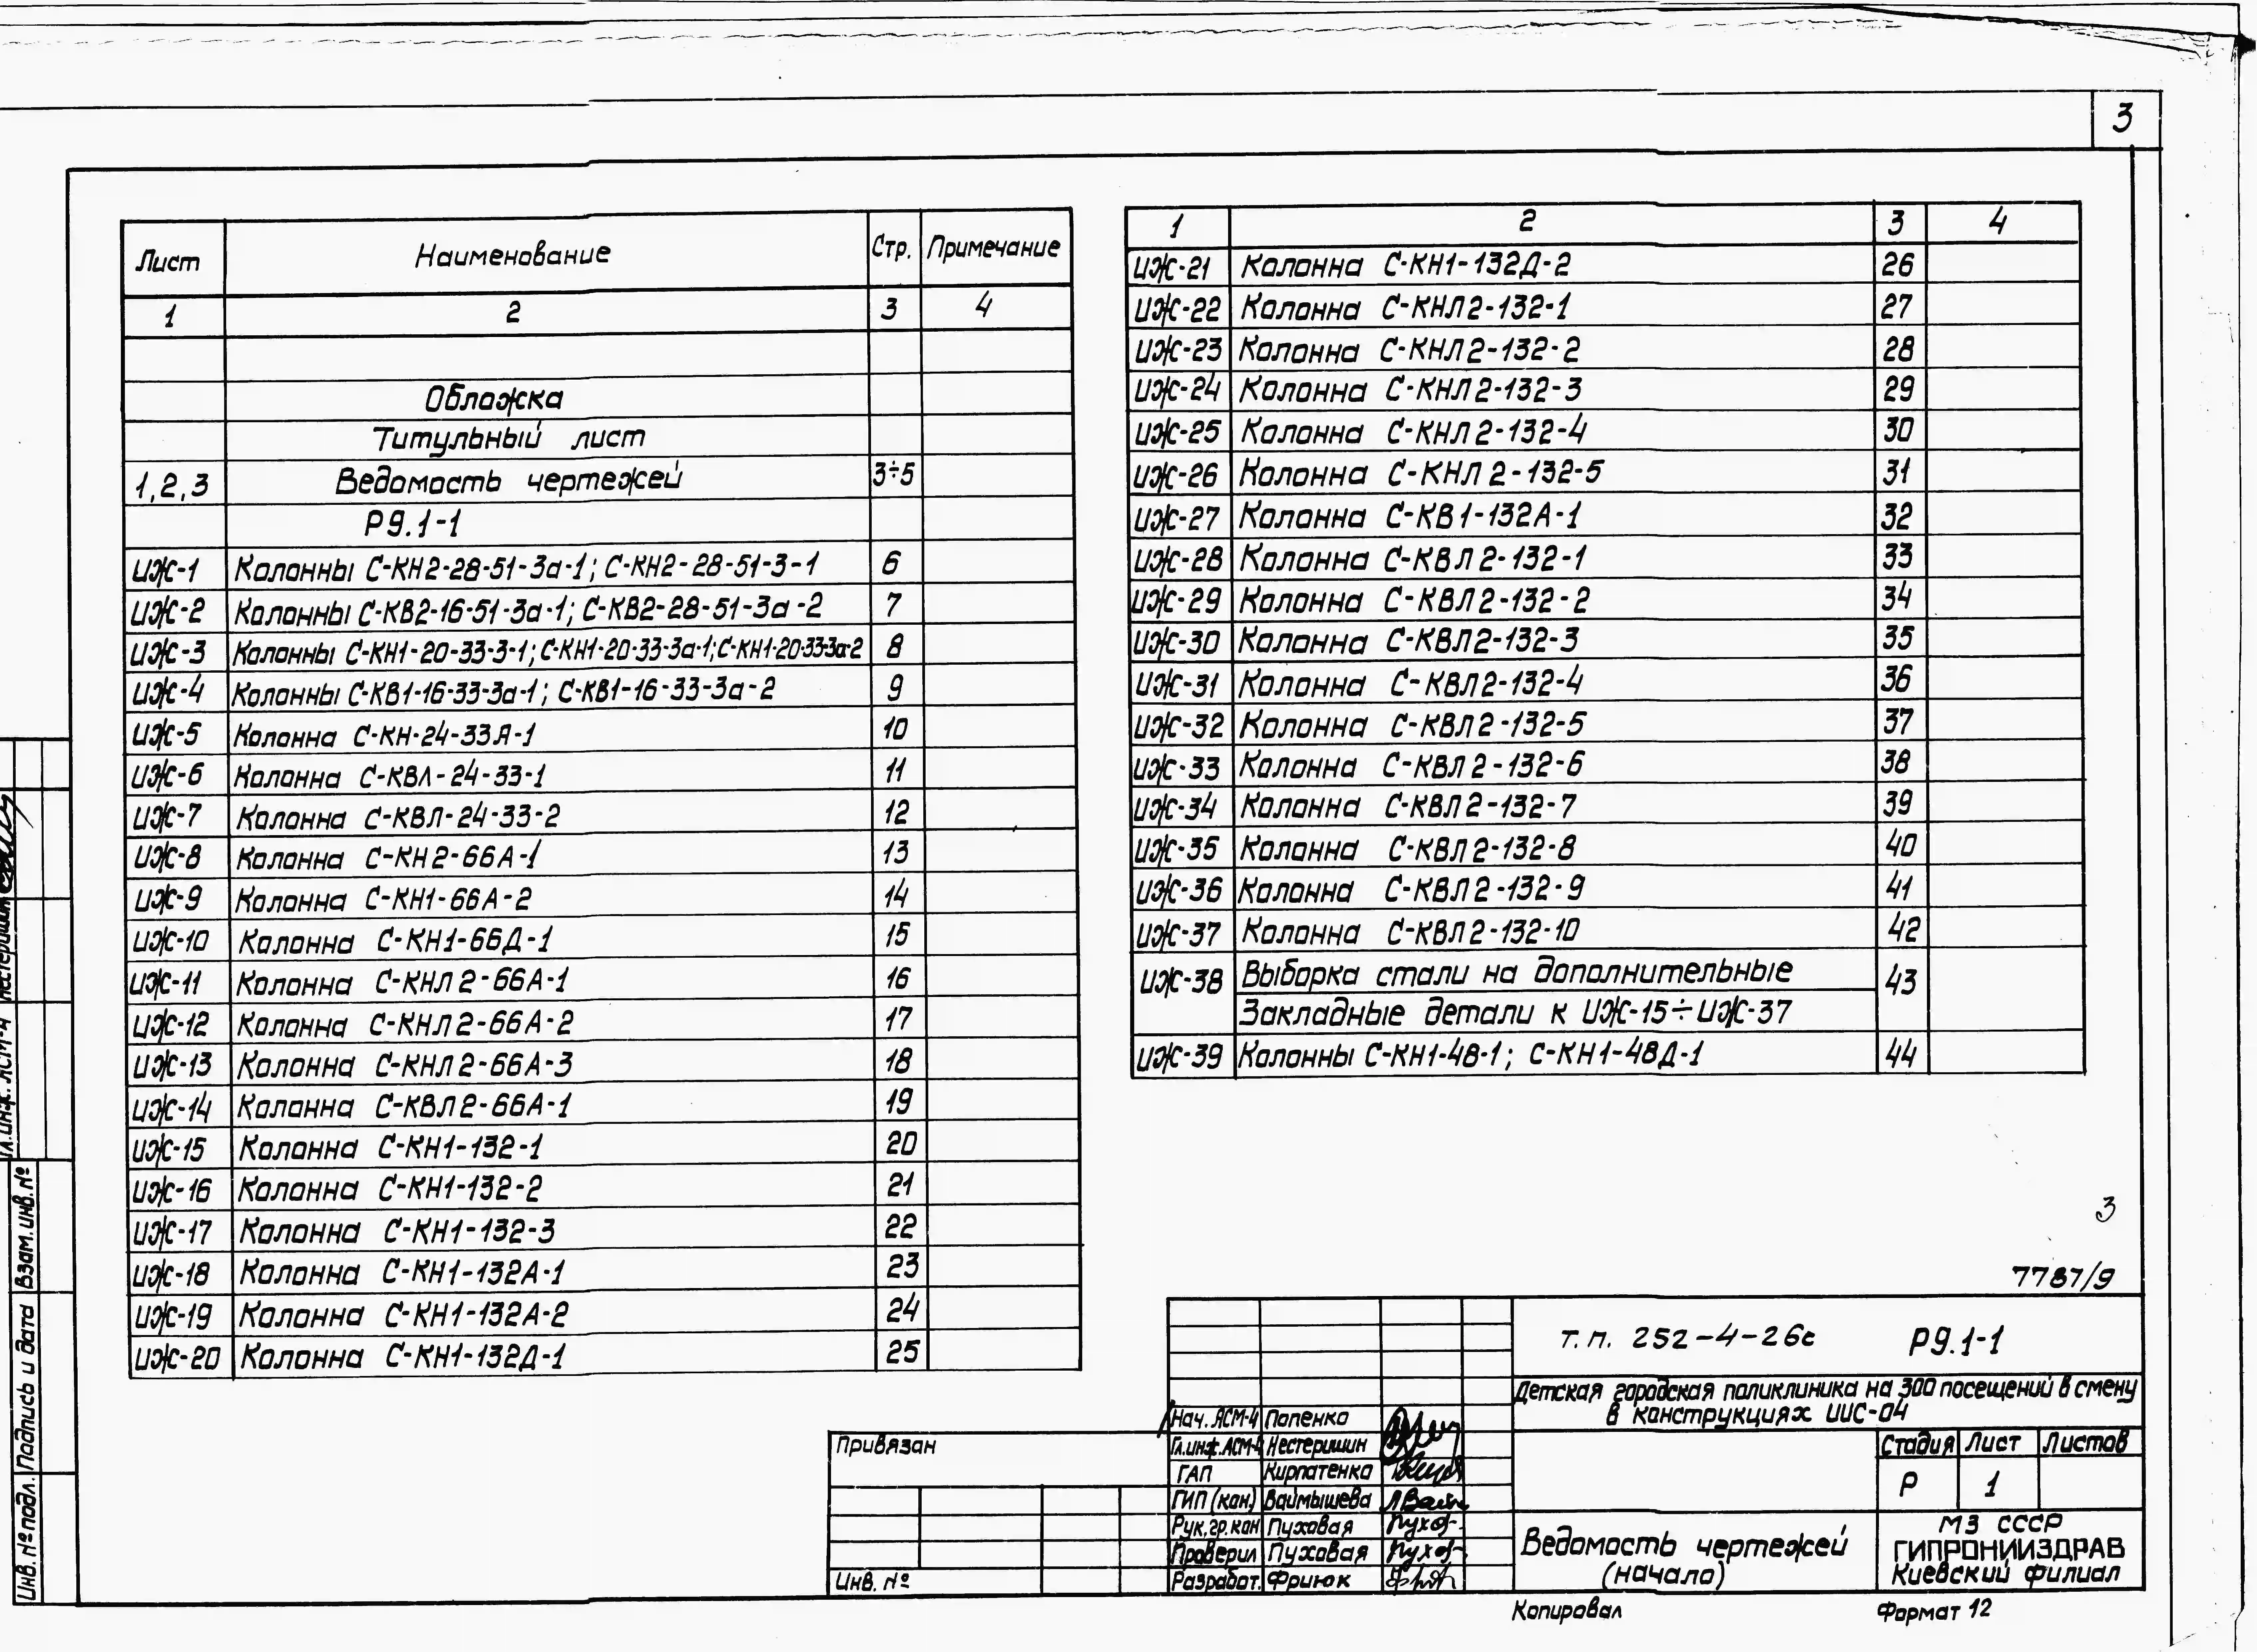 3
Лист Наименование Стр. Примечание
1 2 3 4
Обложка
Титульный лист
1,2,3 Ведомость чертежей 3÷5
Р9.1-1
ИЖ-1 Колонны С-КН2-28-51-3а-1; С-КН2-28-51-3-1 6
ИЖ-2 Колонны С-КВ2-16-51-3а-1; С-КВ2-28-51-3а-2 7
ИЖ-3 Колонны С-КН1-20-33-3-1; С-КН1-20-33-3а-1; С-КН1-20-33-3а-2 8
ИЖ-4 Колонны С-КВ1-16-33-3а-1; С-КВ1-16-33-3а-2 9
ИЖ-5 Колонна С-КН-24-33Я-1 10
ИЖ-6 Колонна С-КВЛ-24-33-1 11
ИЖ-7 Колонна С-КВЛ-24-33-2 12
ИЖ-8 Колонна С-КН2-66А-1 13
ИЖ-9 Колонна С-КН1-66А-2 14
ИЖ-10 Колонна С-КН1-66Д-1 15
ИЖ-11 Колонна С-КНЛ2-66А-1 16
ИЖ-12 Колонна С-КНЛ2-66А-2 17
ИЖ-13 Колонна С-КНЛ2-66А-3 18
ИЖ-14 Колонна С-КВЛ2-66А-1 19
ИЖ-15 Колонна С-КН1-132-1 20
ИЖ-16 Колонна С-КН1-132-2 21
ИЖ-17 Колонна С-КН1-132-3 22
ИЖ-18 Колонна С-КН1-132А-1 23
ИЖ-19 Колонна С-КН1-132А-2 24
ИЖ-20 Колонна С-КН1-132Д-1 25
1 2 3 4
ИЖ-21 Колонна С-КН1-132Д-2 26
ИЖ-22 Колонна С-КНЛ2-132-1 27
ИЖ-23 Колонна С-КНЛ2-132-2 28
ИЖ-24 Колонна С-КНЛ2-132-3 29
ИЖ-25 Колонна С-КНЛ2-132-4 30
ИЖ-26 Колонна С-КНЛ2-132-5 31
ИЖ-27 Колонна С-КВ1-132А-1 32
ИЖ-28 Колонна С-КВЛ2-132-1 33
ИЖ-29 Колонна С-КВЛ2-132-2 34
ИЖ-30 Колонна С-КВЛ2-132-3 35
ИЖ-31 Колонна С-КВЛ2-132-4 36
ИЖ-32 Колонна С-КВЛ2-132-5 37
ИЖ-33 Колонна С-КВЛ2-132-6 38
ИЖ-34 Колонна С-КВЛ2-132-7 39
ИЖ-35 Колонна С-КВЛ2-132-8 40
ИЖ-36 Колонна С-КВЛ2-132-9 41
ИЖ-37 Колонна С-КВЛ2-132-10 42
ИЖ-38 Выборка стали на дополнительные 43
Закладные детали к ИЖ-15÷ИЖ-37
ИЖ-39 Колонны С-КН1-48-1; С-КН1-48Д-1 44
3
7787/9
т.п. 252-4-26с Р9.1-1
Детская городская поликлиника на 300 посещений в смену
в конструкциях ИИС-04
Стадия Лист Листов
Р 1
Ведомость чертежей
(начало)
МЗ СССР
ГИПРОНИИЗДРАВ
Киевский филиал
Нач. АСМ-4 Попенко
Гл.инж.АСМ-4 Нестеришин
ГАП Кирпатенко
ГИП (кон.) Ваймышева
Рук.гр.кон Пуховая
Проверил Пуховая
Разработ. Фриюк
Привязан
Инв. №
Копировал Формат 12
Гл.инж. АСМ-4 Нестеришин
Инв. № подл. Подпись и дата Взам.инв.№